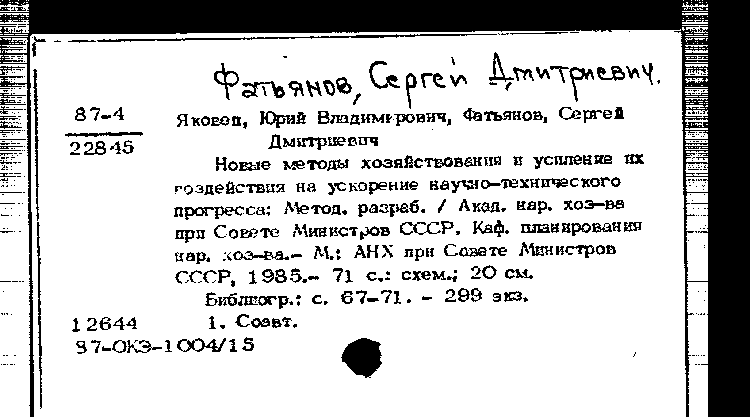 Фатьянов, Сергей Дмитриевич.
87-4
22845
Яковец, Юрий Владимирович, Фатьянов, Сергей
Дмитриевич
Новые методы хозяйствования и усиление их
воздействия на ускорение научно-технического
прогресса: Метод. разраб. / Акад. нар. хоз-ва
при Совете Министров СССР, Каф. планирования
нар. хоз-ва.- М.: АНХ при Совете Министров
СССР, 1985.- 71 с.: схем.; 20 см.
Библиогр.: с. 67-71. - 299 экз.
12644
1. Соавт.
87-ОКЭ-1004/15